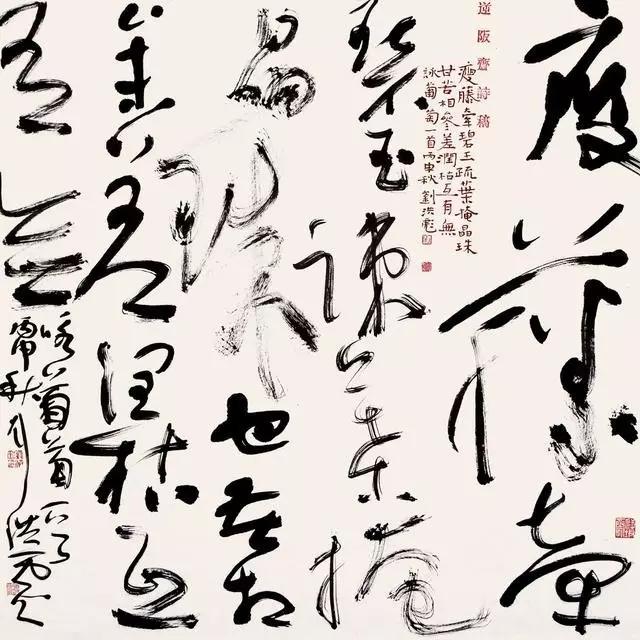 瘦藤牽
逆阪齋詩稿
瘦藤牽碧玉疏葉掩晶珠
甘苦相參差潤枯互有無
詠葡萄一首丙申秋劉洪彪
碧玉疏葉掩
晶珠甘苦相
參差潤枯互
有無
詠葡萄一首
丙申秋劉洪彪